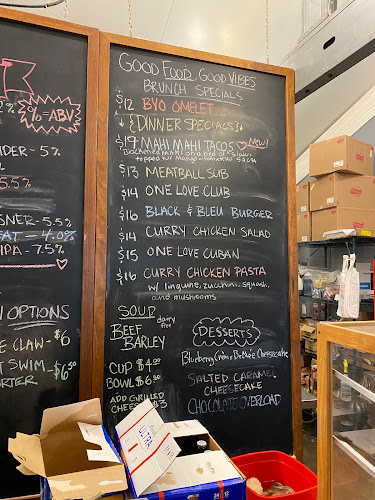 %=ABV
DER - 5%
5.5%
SNER - 5.5%
AT - 4.0%
IPA - 7.5%
OPTIONS
E CLAW - $6
T SWIM - $6.50
RTER
GOOD FOOD, GOOD VIBES
BRUNCH SPECIALS
$12 BYO OMELET
{DINNER SPECIALS}
$19 MAHI MAHI TACOS New!
Blackened Mahi and red slaw
topped w/ mango tomatillo salsa
$13 MEATBALL SUB
$14 ONE LOVE CLUB
$16 BLACK & BLEU BURGER
$14 CURRY CHICKEN SALAD
$15 ONE LOVE CUBAN
$16 CURRY CHICKEN PASTA
w/ linguine, zucchini, squash,
and mushrooms
SOUP
BEEF dairy
BARLEY free
CUP $4.00
BOWL $6.50
ADD GRILLED
CHEESE $3
DESSERTS
Blueberry Brulee Cheesecake
SALTED CARAMEL
CHEESECAKE
CHOCOLATE OVERLOAD
ULTRA